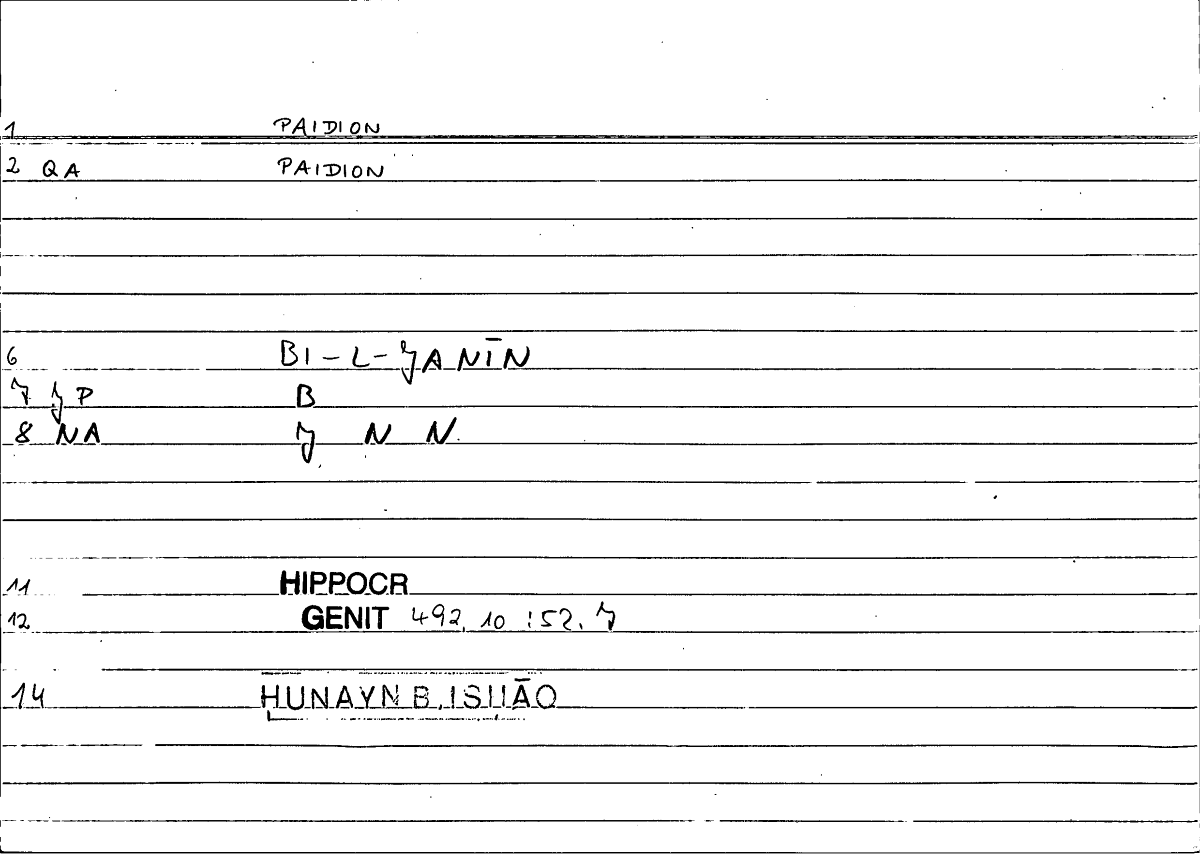 1 PAIDION
2 QA PAIDION
6 BI-L-ǦANĪN
7 ǦP B
8 NA Ǧ N N
11 HIPPOCR
12 GENIT 492,10 :52,7
14 HUNAYN B.ISḤĀQ